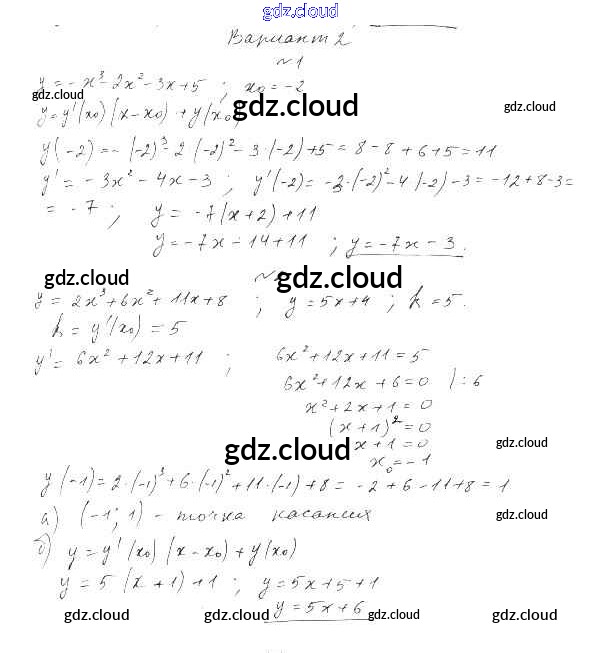 gdz.cloud
Вариант 2
№1
y = -x³ - 2x² - 3x + 5 ; x₀ = -2
gdz.cloud gdz.cloud gdz.cloud
y = y'(x₀)(x - x₀) + y(x₀)
y(-2) = -(-2)³ - 2·(-2)² - 3·(-2) + 5 = 8 - 8 + 6 + 5 = 11
y' = -3x² - 4x - 3 ; y'(-2) = -3·(-2)² - 4(-2) - 3 = -12 + 8 - 3 =
= -7 ; y = -7(x + 2) + 11
y = -7x - 14 + 11 ; y = -7x - 3.
gdz.cloud gdz.cloud
y = 2x³ + 6x² + 11x + 8 ; y = 5x + 4 ; k = 5.
k = y'(x₀) = 5
y' = 6x² + 12x + 11 ; 6x² + 12x + 11 = 5
6x² + 12x + 6 = 0 /:6
x² + 2x + 1 = 0
(x + 1)² = 0
gdz.cloud x + 1 = 0 gdz.cloud
x₀ = -1
y(-1) = 2·(-1)³ + 6·(-1)² + 11·(-1) + 8 = -2 + 6 - 11 + 8 = 1
а) (-1; 1) - точка касания gdz.cloud
б) y = y'(x₀)(x - x₀) + y(x₀)
y = 5(x + 1) + 1 ; y = 5x + 5 + 1
y = 5x + 6
gdz.cloud gdz.cloud gdz.cloud gdz.cloud